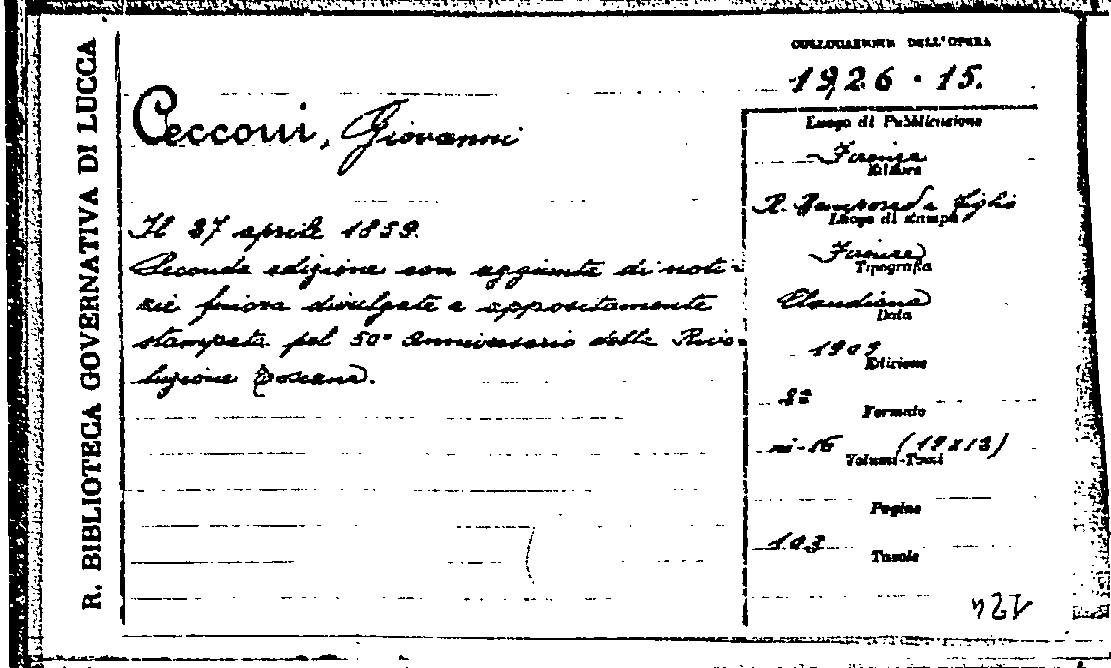 R. BIBLIOTECA GOVERNATIVA DI LUCCA
COLLOCAZIONE DELL'OPERA
1926 · 15.
Cecconi, Giovanni
Il 27 aprile 1859.
Seconda edizione con aggiunta di noti-
zie finora divulgate e appositamente
stampata pel 50° Anniversario della Rivo-
luzione Toscana.
Luogo di Pubblicazione
Firenze
Editore
R. Bemporad e Figlio
Luogo di stampa
Firenze
Tipografia
Claudiana
Data
1909
Edizione
2ª
Formato
in-16 (19x12)
Volumi-Tomi
Pagine
103
Tavole